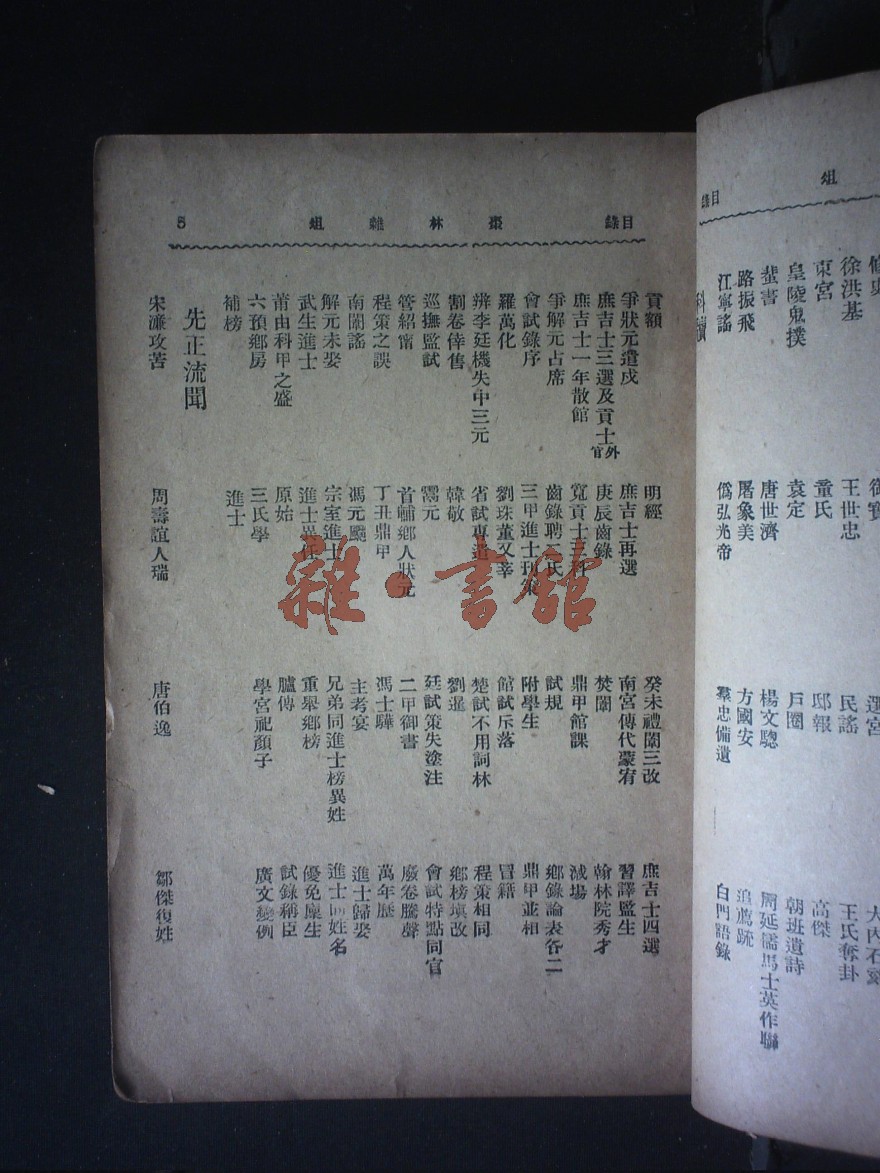 俎 目錄
修史 御寶 遷宮
徐洪基 王世忠 民謠 王氏奪卦
東宮 童氏 邸報 高傑
皇陵鬼撲 袁定 戶圈 朝班遺詩
蜚書 唐世濟 楊文驄 周延儒馬士英作聯
路振飛 屠象美 方國安 追薦疏
江寧謠 僞弘光帝 羣忠備遺 白門語錄
科牘
目錄 棗林雜俎 5
貢額 明經 癸未禮闈三改 庶吉士四選
爭狀元遣戍 庶吉士再選 南宮傳代蒙宥 習譯監生
庶吉士三選及貢士外官 庚辰齒錄 焚闈 翰林院秀才
庶吉士一年散館 寬貢士三科 鼎甲館課 減場
爭解元占席 齒錄聘二氏 試規 鄉錄論表各二
會試錄序 三甲進士刊策 附學生 鼎甲並相
羅萬化 劉珠董又莘 館試斥落 冒籍
辨李廷機失中三元 省試專道 楚試不用詞林 程策相同
割卷倖售 韓敬 劉暹 鄉榜塡改
巡撫監試 廷試策失塗注 會試特點同官
管紹甯 首輔鄉人狀元 二甲御書 廢卷騰聲
程策之誤 丁丑鼎甲 馮士驊 萬年歷
南闈謠 馮元颺 主考宴 進士歸娶
解元未娶 宗室進士 兄弟同進士榜異姓 進士同姓名
武生進士 進士異任 重舉鄉榜 優免廩生
莆由科甲之盛 原始 臚傳 試錄稱臣
六預鄉房 三氏學 學宮祀顏子 廣文變例
補榜 進士
先正流聞
宋濂攻苦 周壽誼人瑞 唐伯逸 鄒傑復姓
雜·書館